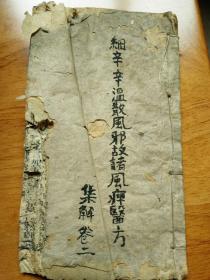 細辛辛溫散風邪故諸風痺醫方
集解 卷二